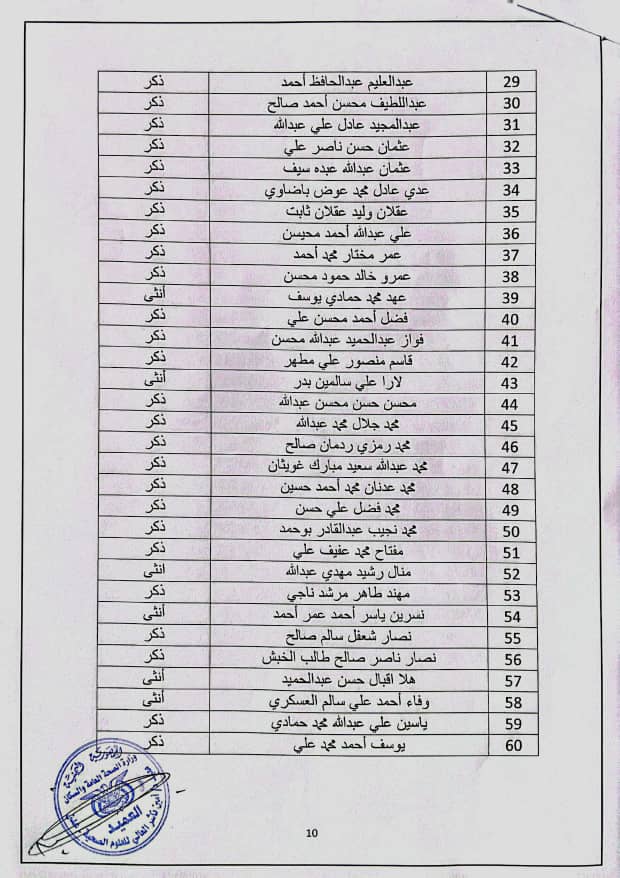 29 عبدالعليم عبدالحافظ أحمد ذكر
30 عبداللطيف محسن أحمد صالح ذكر
31 عبدالمجيد عادل علي عبدالله ذكر
32 عثمان حسن ناصر علي ذكر
33 عثمان عبدالله عبده سيف ذكر
34 عدي عادل محمد عوض باضاوي ذكر
35 عقلان وليد عقلان ثابت ذكر
36 علي عبدالله أحمد محيسن ذكر
37 عمر مختار محمد أحمد ذكر
38 عمرو خالد حمود محسن ذكر
39 عهد محمد حمادي يوسف أنثى
40 فضل أحمد محسن علي ذكر
41 فواز عبدالحميد عبدالله محسن ذكر
42 قاسم منصور علي مطهر ذكر
43 لارا علي سالمين بدر أنثى
44 محسن حسن محسن عبدالله ذكر
45 محمد جلال محمد عبدالله ذكر
46 محمد رمزي ردمان صالح ذكر
47 محمد عبدالله سعيد مبارك غويثان ذكر
48 محمد عدنان محمد أحمد حسين ذكر
49 محمد فضل علي حسن ذكر
50 محمد نجيب عبدالقادر بوحمد ذكر
51 مفتاح محمد عفيف علي ذكر
52 منال رشيد مهدي عبدالله انثى
53 مهند طاهر مرشد ناجي ذكر
54 نسرين ياسر أحمد عمر أحمد أنثى
55 نصار شعفل سالم صالح ذكر
56 نصار ناصر صالح طالب الخبش ذكر
57 هلا اقبال حسن عبدالحميد أنثى
58 وفاء أحمد علي سالم العسكري أنثى
59 ياسين علي عبدالله محمد حمادي ذكر
60 يوسف أحمد محمد علي ذكر
الجمهورية اليمنية
وزارة الصحة العامة والسكان
العميد
العالي للعلوم الصحية
10